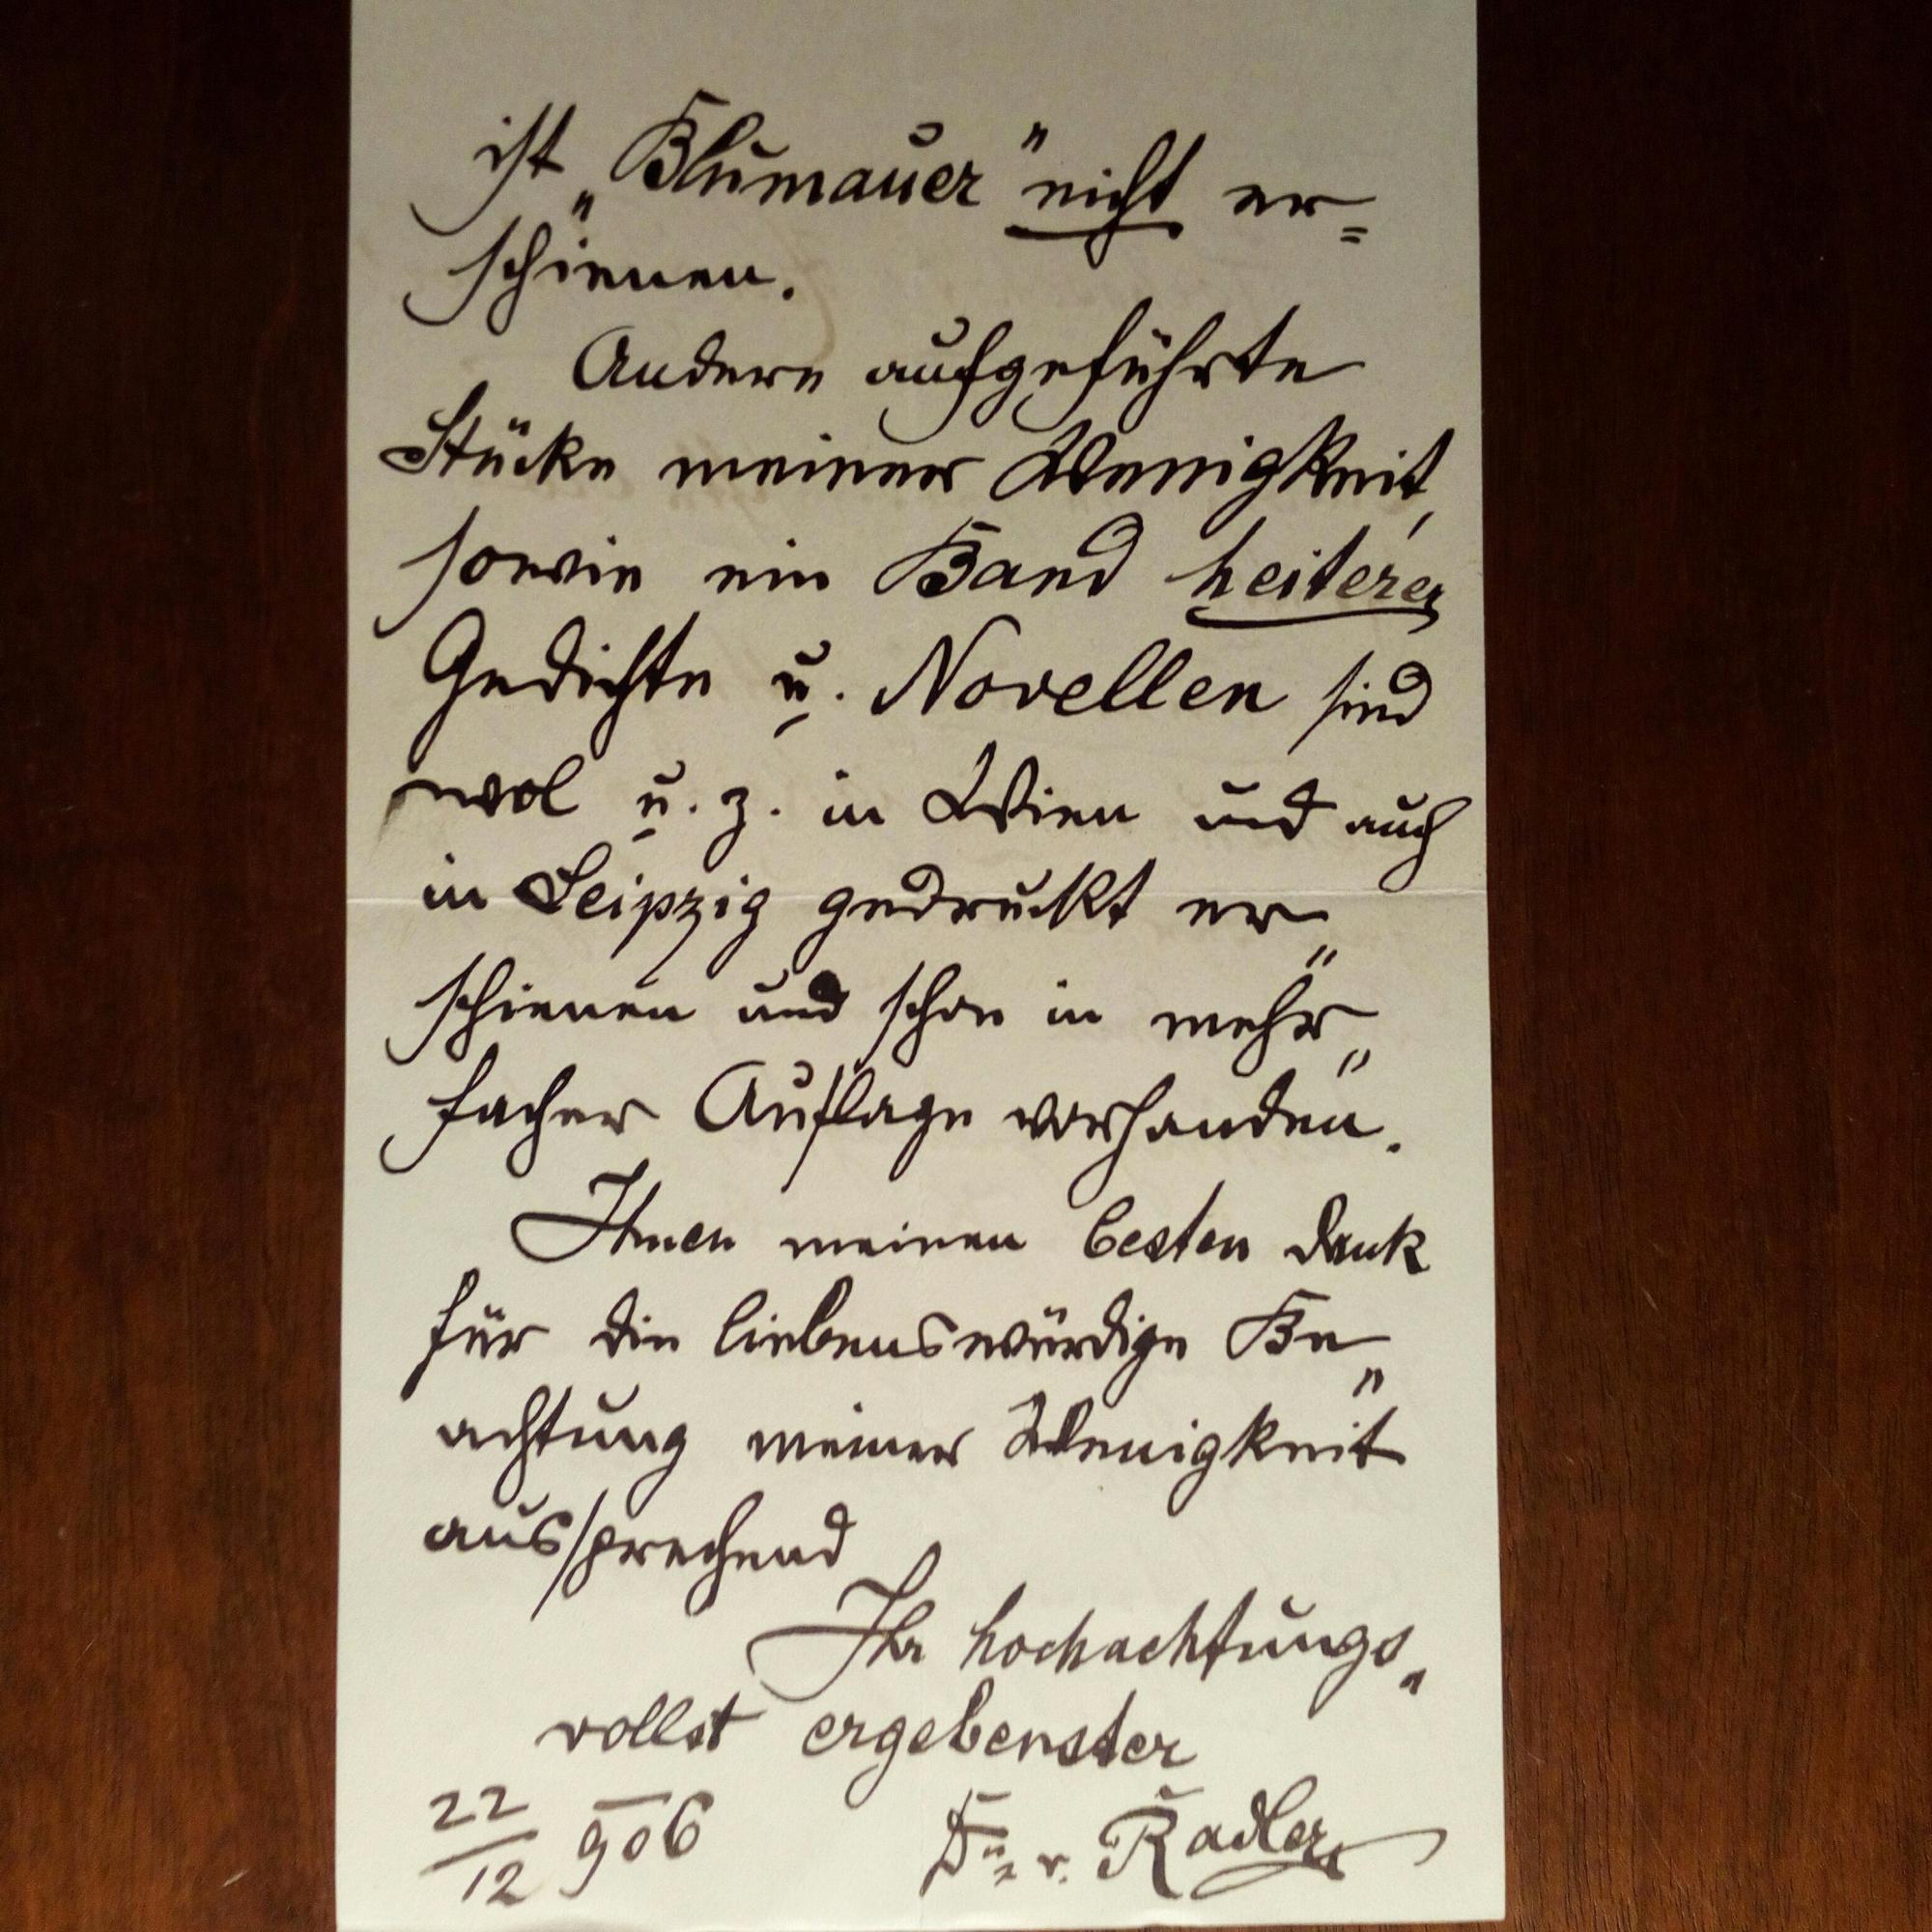 ist „Blumauer" nicht er=
schienen.
Andere aufgeführte
Stücke meiner Wenigkeit,
sowie ein Band heiterer
Gedichte u. Novellen sind
wol u. z. in Wien und auch
in Leipzig gedruckt er„
schienen und schon in mehr„
facher Auflage vorhanden.
Ihnen meinen besten Dank
für die liebenswürdige Be„
achtung meiner Wenigkeit
aussprechend
Ihr hochachtungs„
vollst ergebenster
22/12 906 Fr. v. Radler